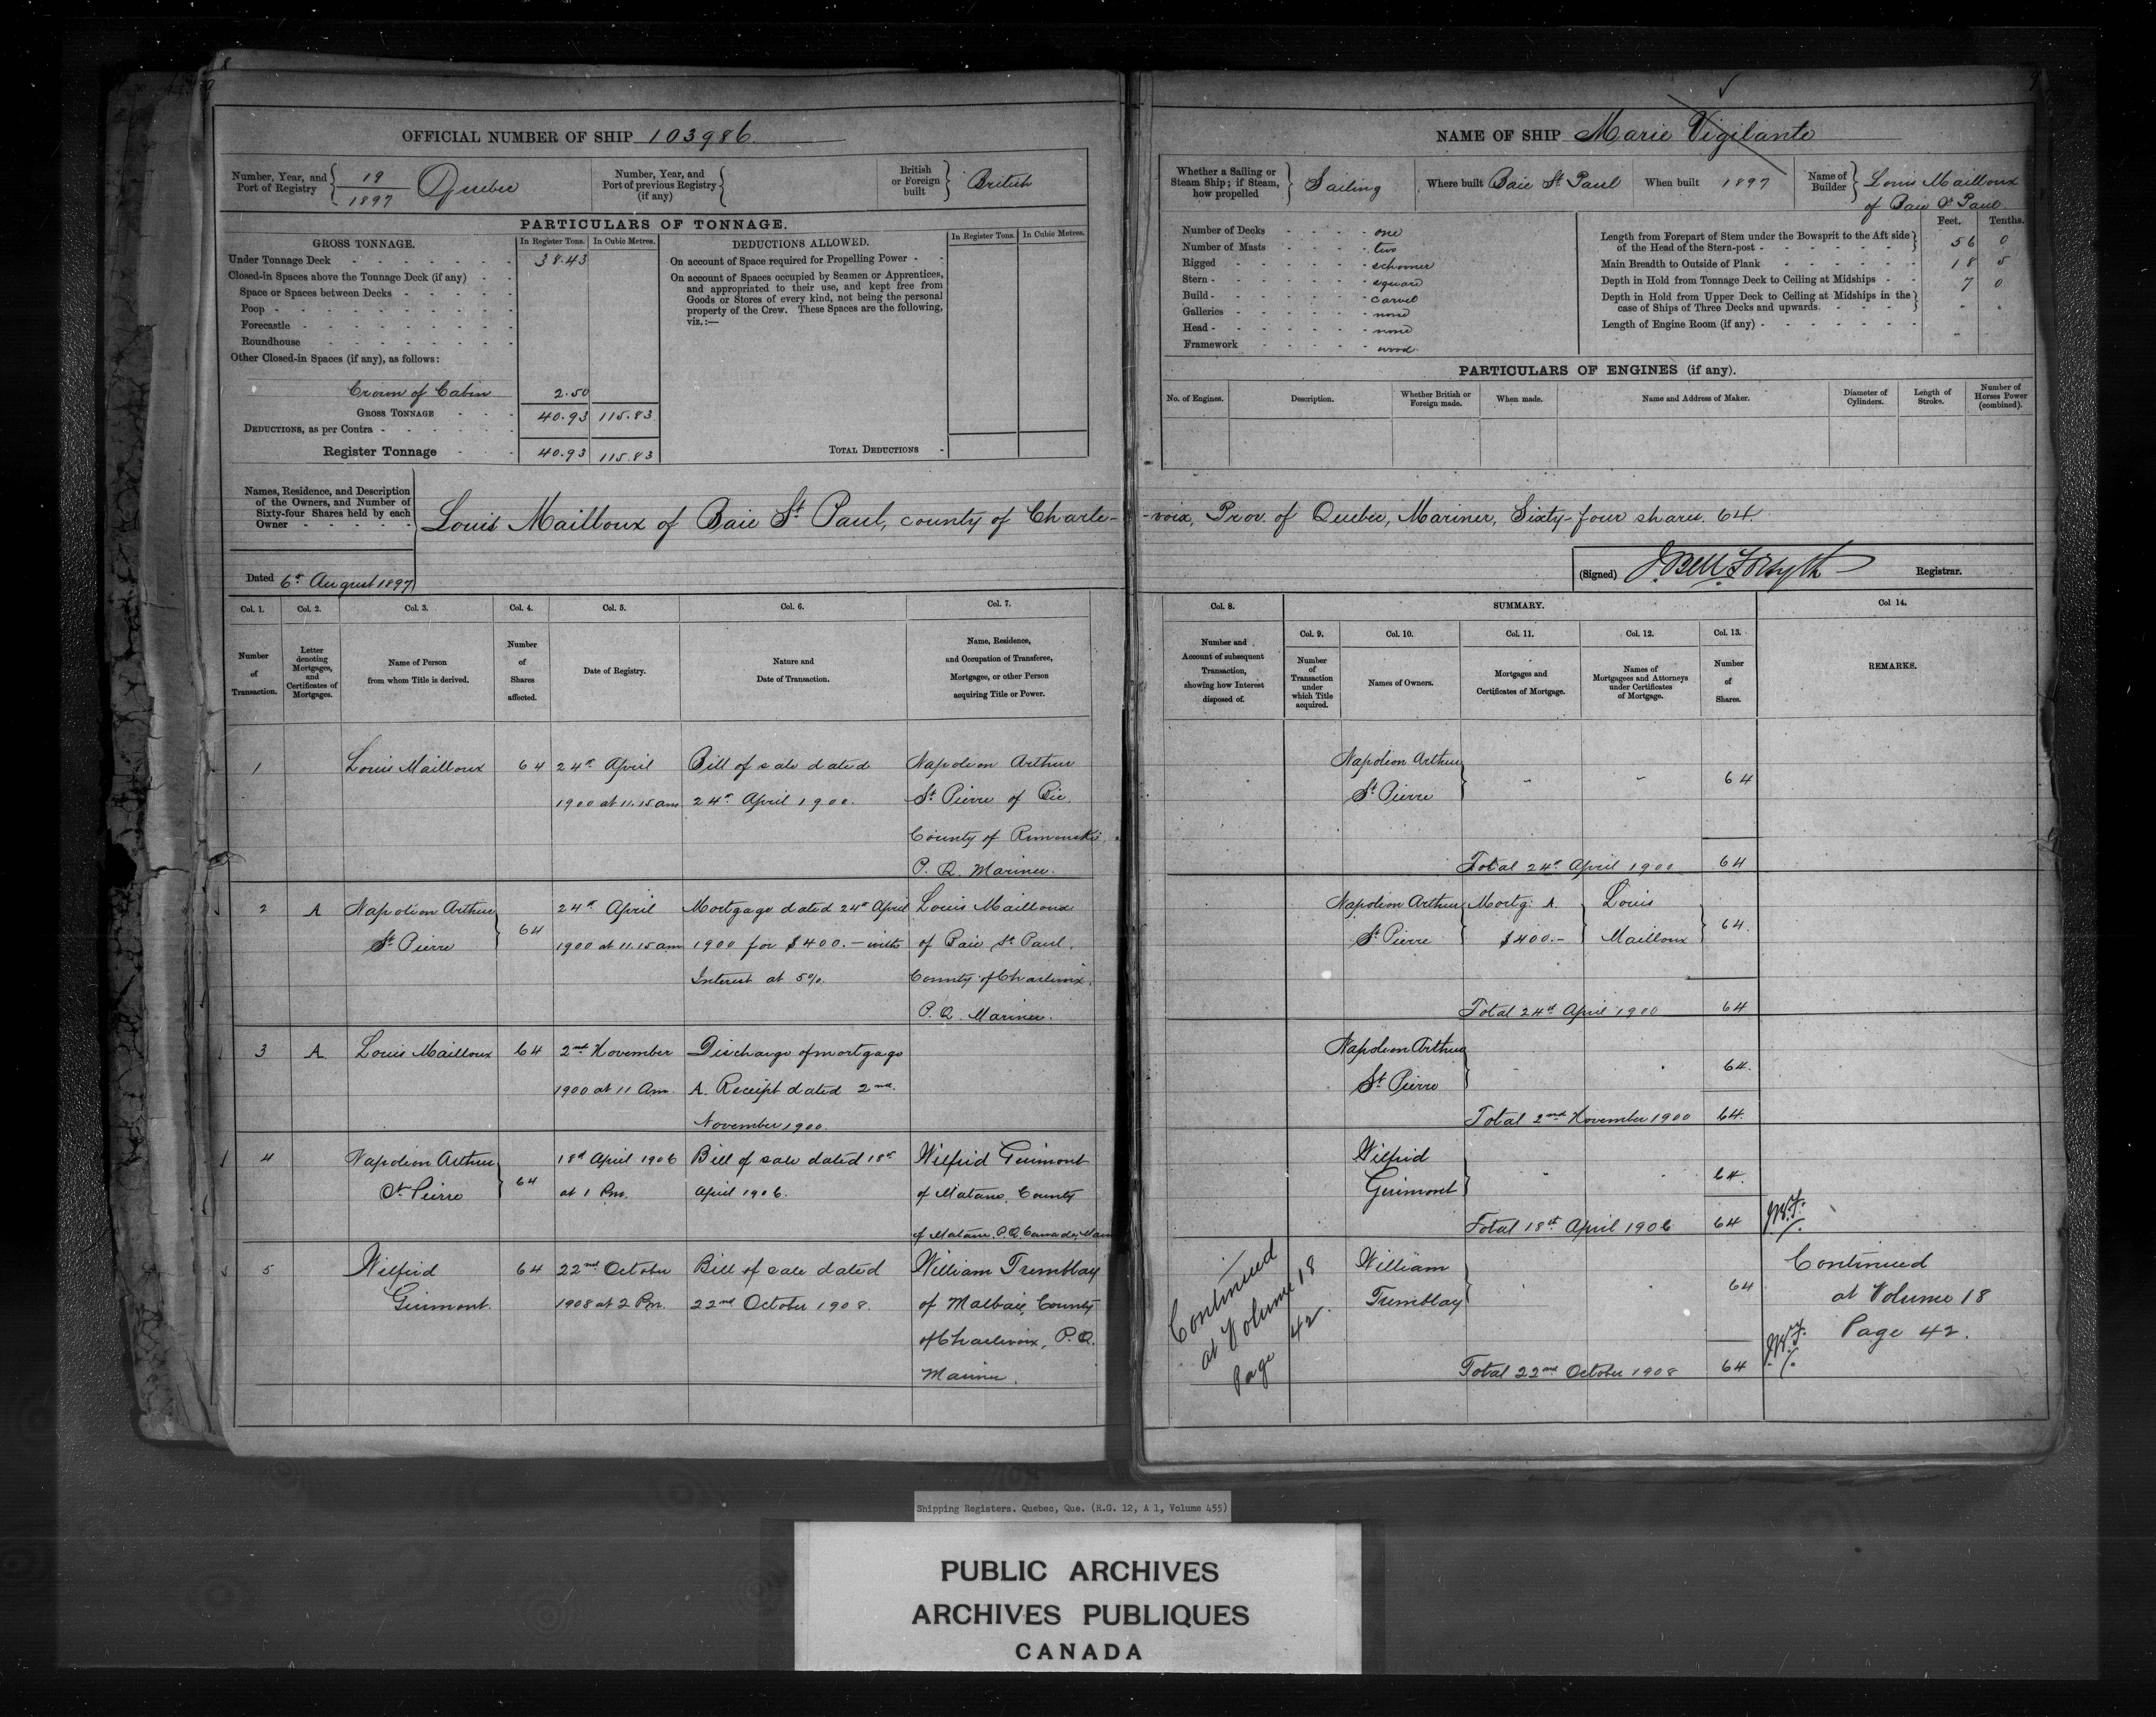 8
OFFICIAL NUMBER OF SHIP 103986.
Number, Year, and Port of Registry { 19 / 1897 Quebec
Number, Year, and Port of previous Registry (if any) {
British or Foreign built } British
PARTICULARS OF TONNAGE.
GROSS TONNAGE. In Register Tons. In Cubic Metres.
Under Tonnage Deck 38.43
Closed-in Spaces above the Tonnage Deck (if any)
Space or Spaces between Decks
Poop
Forecastle
Roundhouse
Other Closed-in Spaces (if any), as follows:
Crown of Cabin 2.50
GROSS TONNAGE 40.93 115.83
DEDUCTIONS, as per Contra
Register Tonnage 40.93 115.83
DEDUCTIONS ALLOWED. In Register Tons. In Cubic Metres.
On account of Space required for Propelling Power
On account of Spaces occupied by Seamen or Apprentices,
and appropriated to their use, and kept free from
Goods or Stores of every kind, not being the personal
property of the Crew. These Spaces are the following,
viz.:—
TOTAL DEDUCTIONS
NAME OF SHIP Marie Vigilante
Whether a Sailing or Steam Ship; if Steam, how propelled } Sailing
Where built Baie St Paul
When built 1897
Name of Builder } Louis Mailloux
of Baie St Paul
Number of Decks one
Number of Masts two
Rigged schooner
Stern square
Build carvel
Galleries none
Head none
Framework wood
Feet. Tenths.
Length from Forepart of Stem under the Bowsprit to the Aft side
of the Head of the Stern-post } 56 0
Main Breadth to Outside of Plank 18 5
Depth in Hold from Tonnage Deck to Ceiling at Midships 7 0
Depth in Hold from Upper Deck to Ceiling at Midships in the
case of Ships of Three Decks and upwards. }
Length of Engine Room (if any)
PARTICULARS OF ENGINES (if any).
No. of Engines. Description. Whether British or Foreign made. When made. Name and Address of Maker. Diameter of Cylinders. Length of Stroke. Number of Horses Power (combined).
Names, Residence, and Description
of the Owners, and Number of
Sixty-four Shares held by each
Owner
Louis Mailloux of Baie St Paul, county of Charle-voix, Prov. of Quebec, Mariner, Sixty-four shares. 64.
Dated 6th August 1897
(Signed) J. Bell Forsyth Registrar.
Col. 1. Col. 2. Col. 3. Col. 4. Col. 5. Col. 6. Col. 7.
Number of Transaction.
Letter denoting Mortgages, and Certificates of Mortgages.
Name of Person from whom Title is derived.
Number of Shares affected.
Date of Registry.
Nature and Date of Transaction.
Name, Residence, and Occupation of Transferee, Mortgagee, or other Person acquiring Title or Power.
Col. 8. SUMMARY. Col 14.
Col. 9. Col. 10. Col. 11. Col. 12. Col. 13.
Number and Account of subsequent Transaction, showing how Interest disposed of.
Number of Transaction under which Title acquired.
Names of Owners.
Mortgages and Certificates of Mortgage.
Names of Mortgagees and Attorneys under Certificates of Mortgage.
Number of Shares.
REMARKS.
1 Louis Mailloux 64 24th April Bill of sale dated Napoleon Arthur
1900 at 11.15 am 24th April 1900. St Pierre of Bic.
County of Rimouski
P. Q. Mariner.
Napoleon Arthur
St Pierre } 64
Total 24th April 1900 64
2 A Napoleon Arthur 24th April Mortgage dated 24th April Louis Mailloux
St Pierre } 64 1900 at 11.15 am 1900 for $400.— with of Baie St Paul.
Interest at 5%. County of Charlevoix.
P. Q. Mariner.
Napoleon Arthur Mortg: A. Louis
St Pierre } $400.— } Mailloux } 64.
Total 24th April 1900 64
3 A. Louis Mailloux 64 2nd November Discharge of mortgage
1900 at 11 Am. A. Receipt dated 2nd.
November 1900.
Napoleon Arthur
St Pierre } 64.
Total 2nd November 1900 64.
4 Napoleon Arthur 18th April 1906 Bill of sale dated 18th Wilfrid Guimont
St Pierre } 64 at 1 Pm. April 1906. of Matane, County
of Matane. P.Q. Canada,
Wilfrid
Guimont } 64.
Total 18th April 1906 64
5 Wilfrid 64 22nd October Bill of sale dated William Tremblay
Guimont. 1908 at 2 Pm. 22nd October 1908. of Malbaie, County
of Charlevoix, P.Q.
Mariner.
Continued
at Volume 18
Page 42.
William
Tremblay } 64
Total 22nd October 1908 64
Continued
at Volume 18
Page 42.
Shipping Registers. Quebec, Que. (R.G. 12, A 1, Volume 455)
PUBLIC ARCHIVES
ARCHIVES PUBLIQUES
CANADA